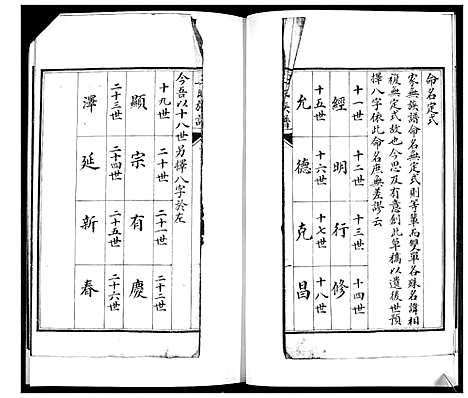 命名定式
家無族譜命名無定式則等輩而雙單各殊名諱相
複無定式故也今思及有意創此草稿以遺後世預
擇八字依此命名庶無差謬云
十一世 十二世 十三世 十四世
經 明 行 修
十五世 十六世 十七世 十八世
允 德 克 昌
族譜
今吾以十八世另擇八字於左
十九世 二十世 二十一世 二十二世
顯 宗 有 慶
二十三世 二十四世 二十五世 二十六世
澤 延 新 春